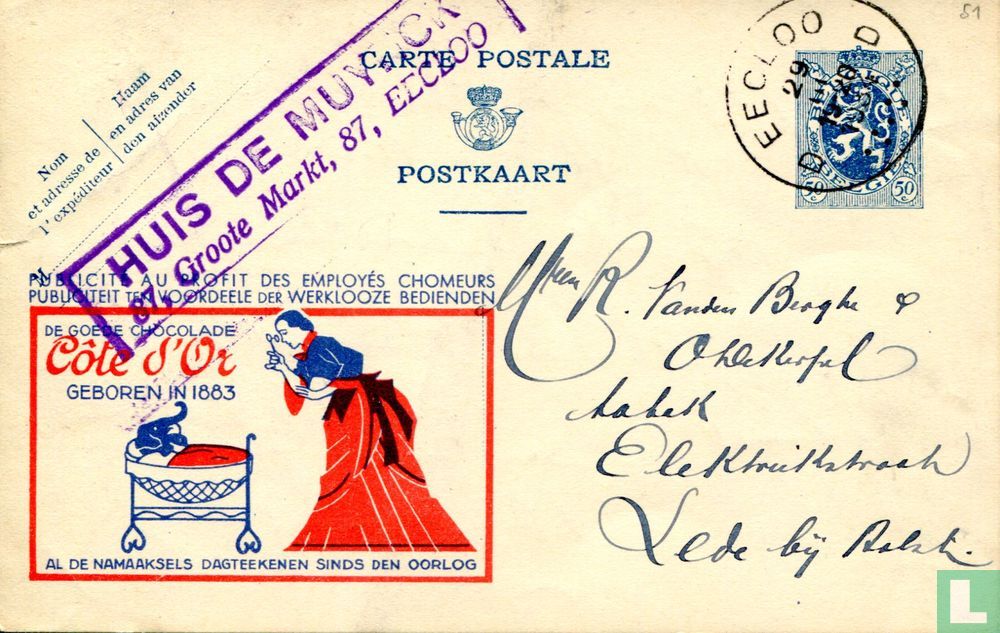 51
CARTE POSTALE
POSTKAART
Nom
et adresse de
l'expéditeur
Naam
en adres van
den afzender
HUIS DE MUYNCK
87, Groote Markt, 87, EECLOO
EECLOO
29
D D
BELGIQUE
BELGIË
50c 50c
PUBLICITÉ AU PROFIT DES EMPLOYÉS CHOMEURS
PUBLICITEIT TEN VOORDEELE DER WERKLOOZE BEDIENDEN
DE GOEDE CHOCOLADE
Côte d'Or
GEBOREN IN 1883
AL DE NAMAAKSELS DAGTEEKENEN SINDS DEN OORLOG
R. Vanden Berghe &
Elektriekstraat
Lede bij Aalst.
L